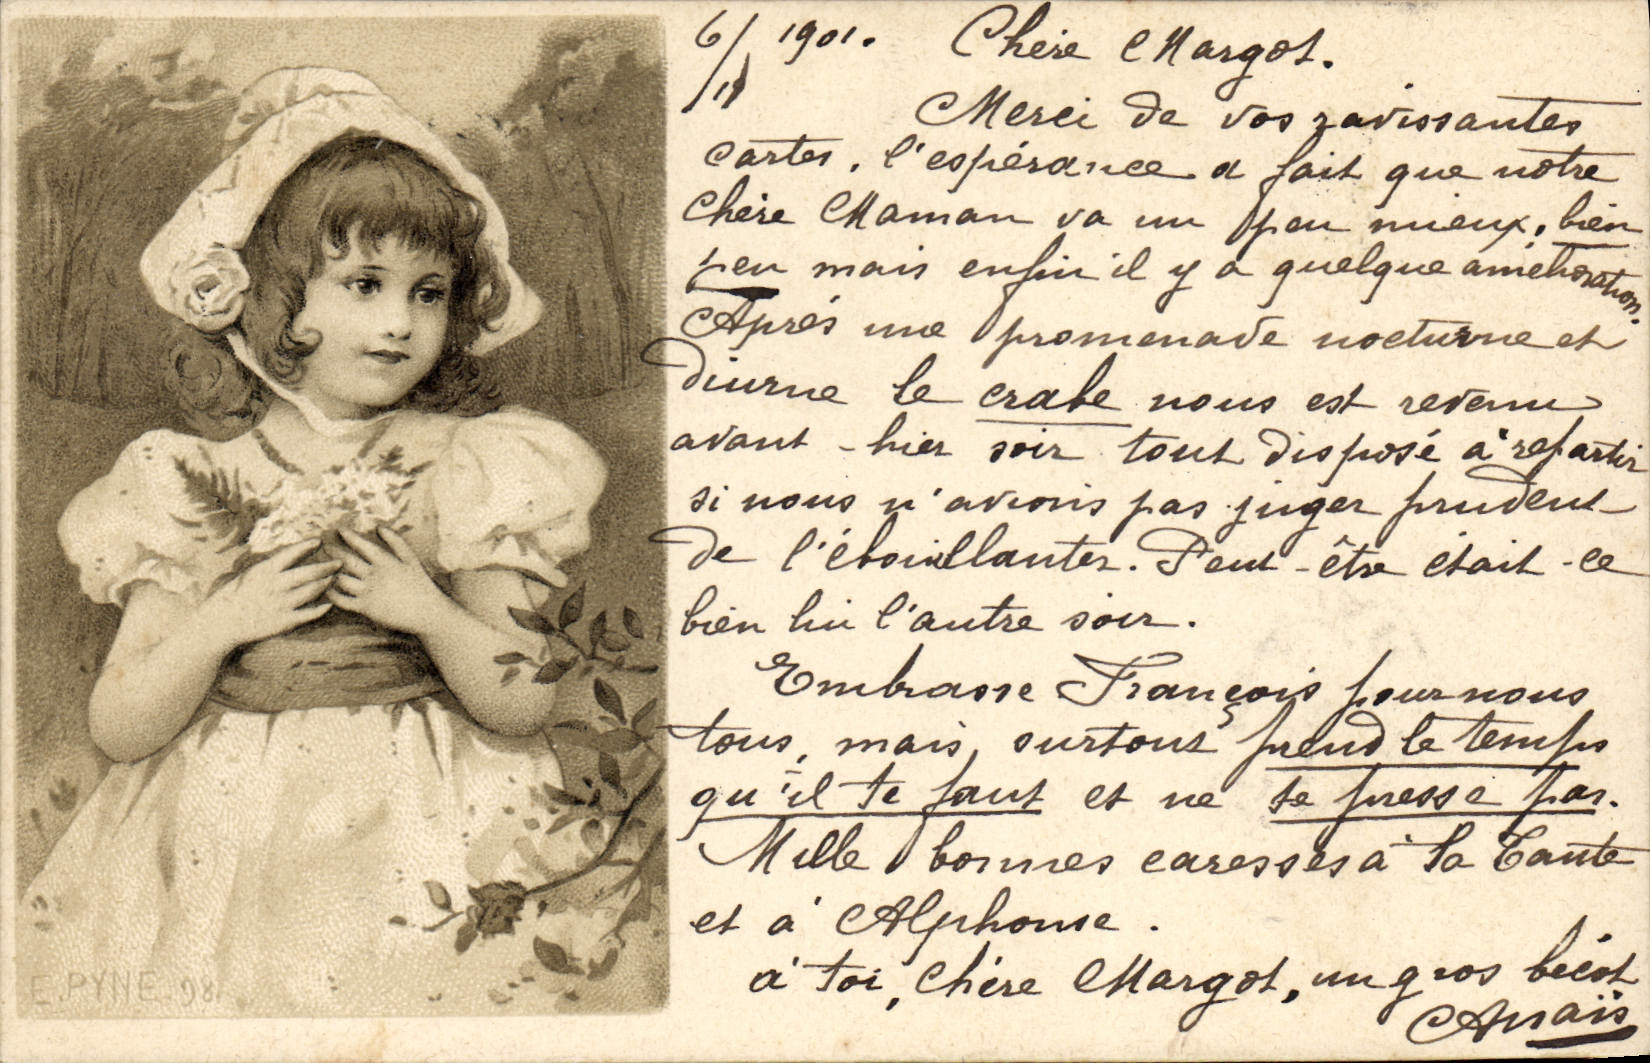 6/11 1901. Chère Margot.
Merci de vos ravissantes
cartes, l'espérance a fait que notre
chère Maman va un peu mieux, bien
peu mais enfin il y a quelque amélioration.
Après une promenade nocturne et
diurne le crabe nous est revenu
avant-hier soir tout disposé à repartir
si nous n'avions pas juger prudent
de l'ébouillanter. Peut-être était-ce
bien lui l'autre soir.
Embrasse François pour nous
tous, mais, surtout prend le temps
qu'il te faut et ne te presse pas.
Mille bonnes caresses à ta Tante
et à Alphonse.
à toi, chère Margot, un gros bécot
Anaïs
E. PYNE. 98.